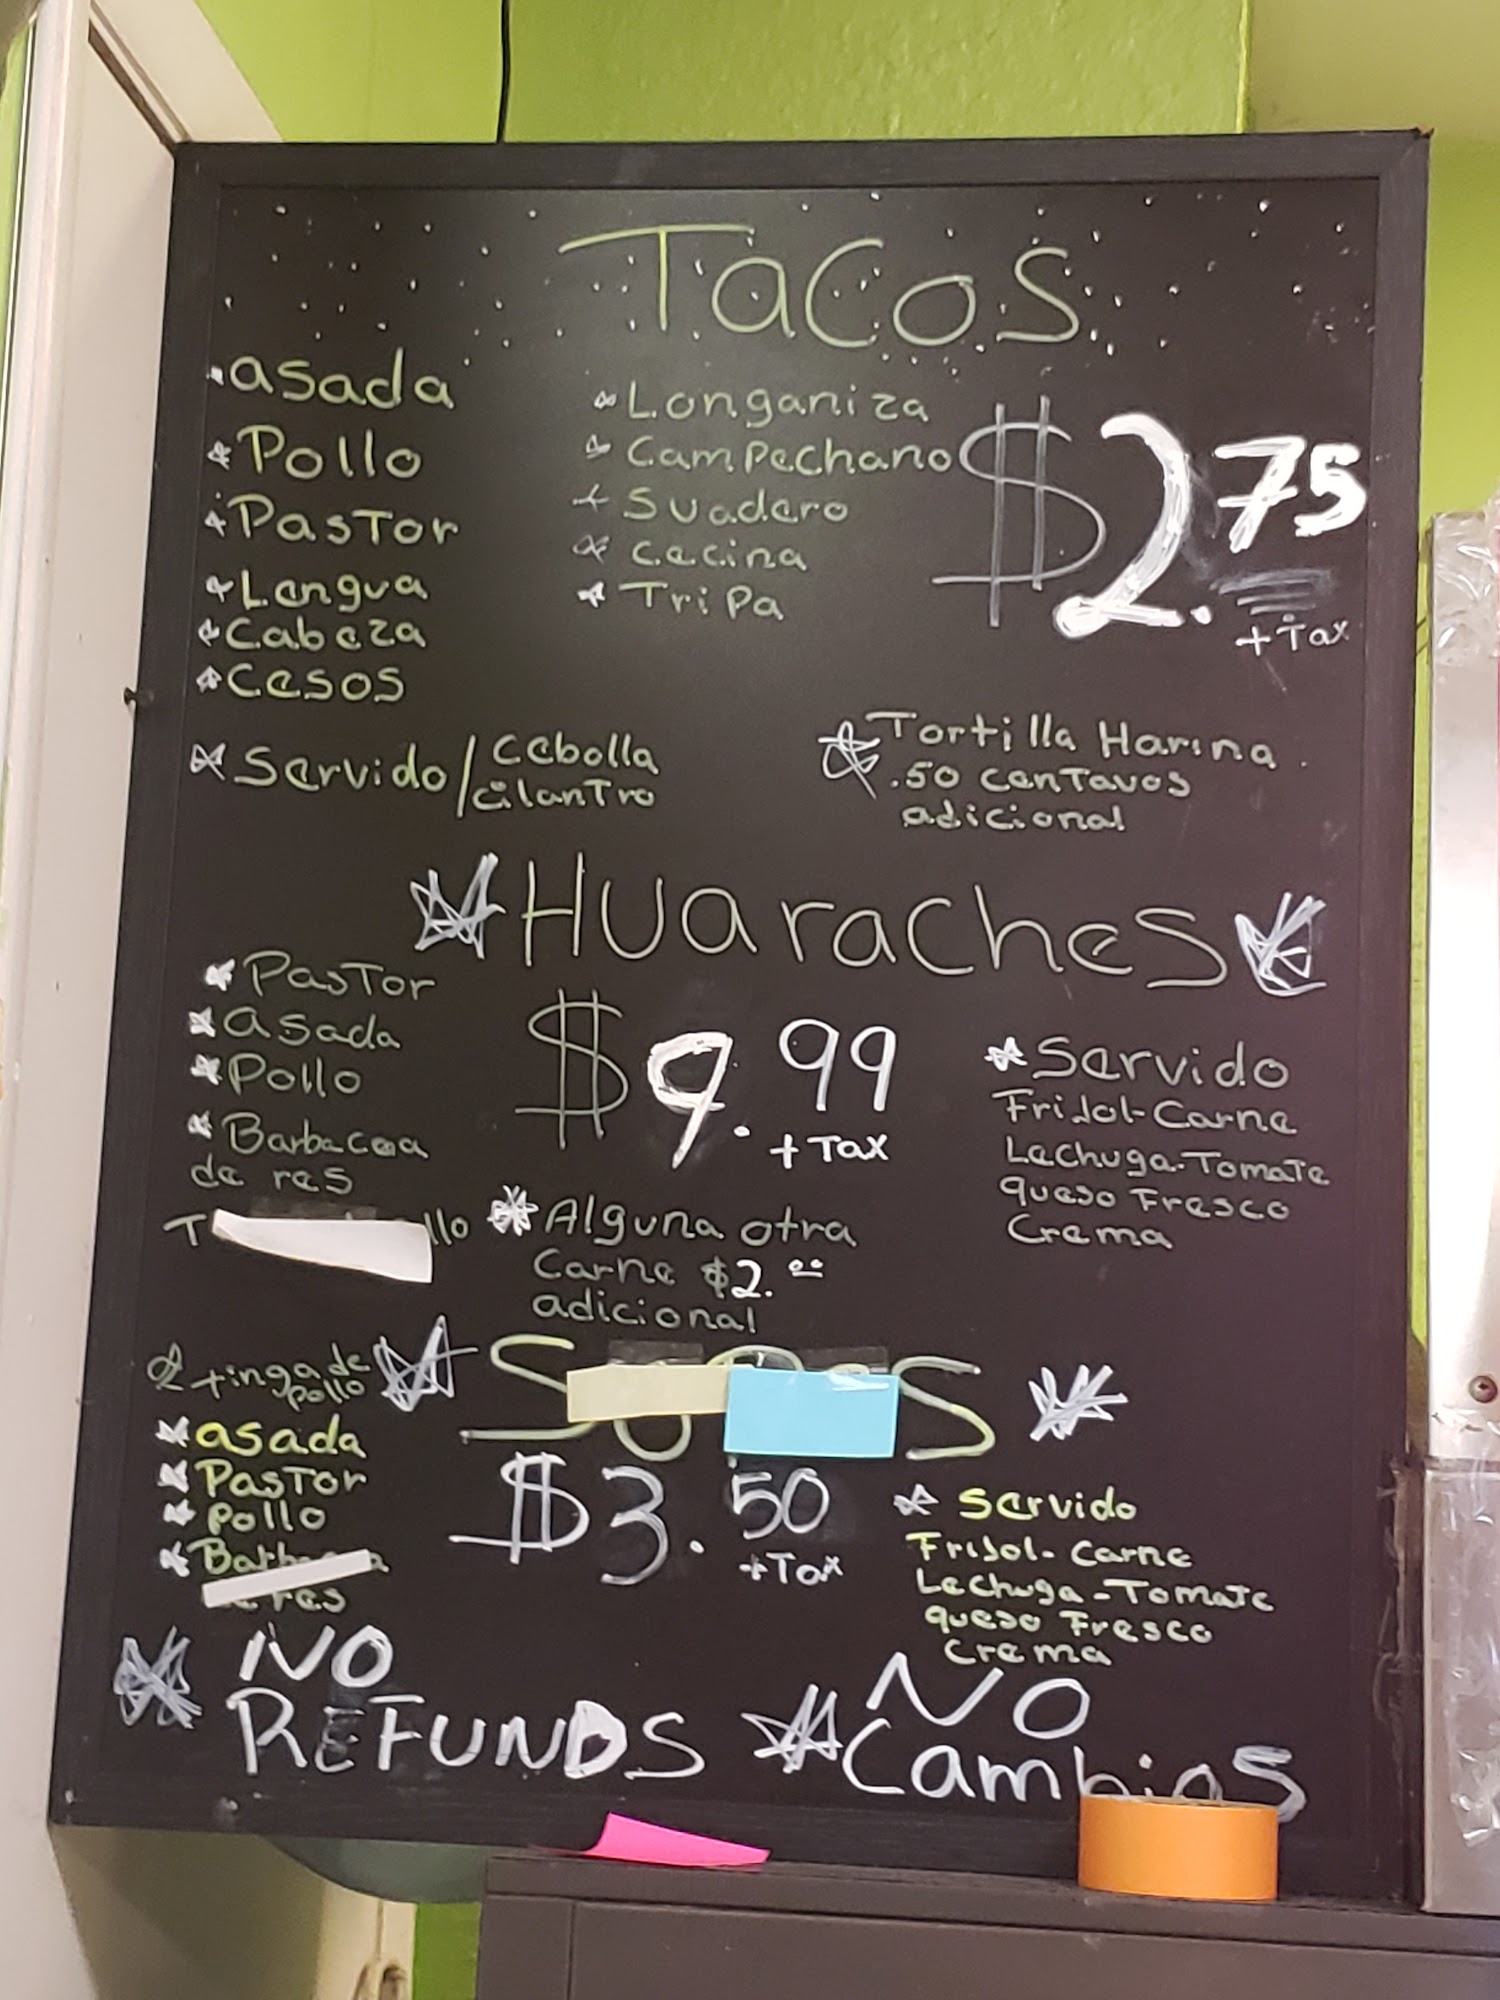 Tacos
asada
Pollo
Pastor
Lengua
Cabeza
Cesos
Longaniza
Campechano
Suadero
Cecina
Tripa
$2.75
+Tax
Servido/Cebolla
cilantro
Tortilla Harina
.50 centavos
adicional
Huaraches
Pastor
asada
Pollo
Barbacoa
de res
$9.99
+Tax
Servido
Frijol-Carne
Lechuga-Tomate
queso Fresco
Crema
Alguna otra
Carne $2.00
adicional
tinga de
pollo
asada
Pastor
Pollo
res
$3.50
+Tax
Servido
Frijol-Carne
Lechuga-Tomate
queso Fresco
Crema
NO
REFUNDS
NO
Cambios